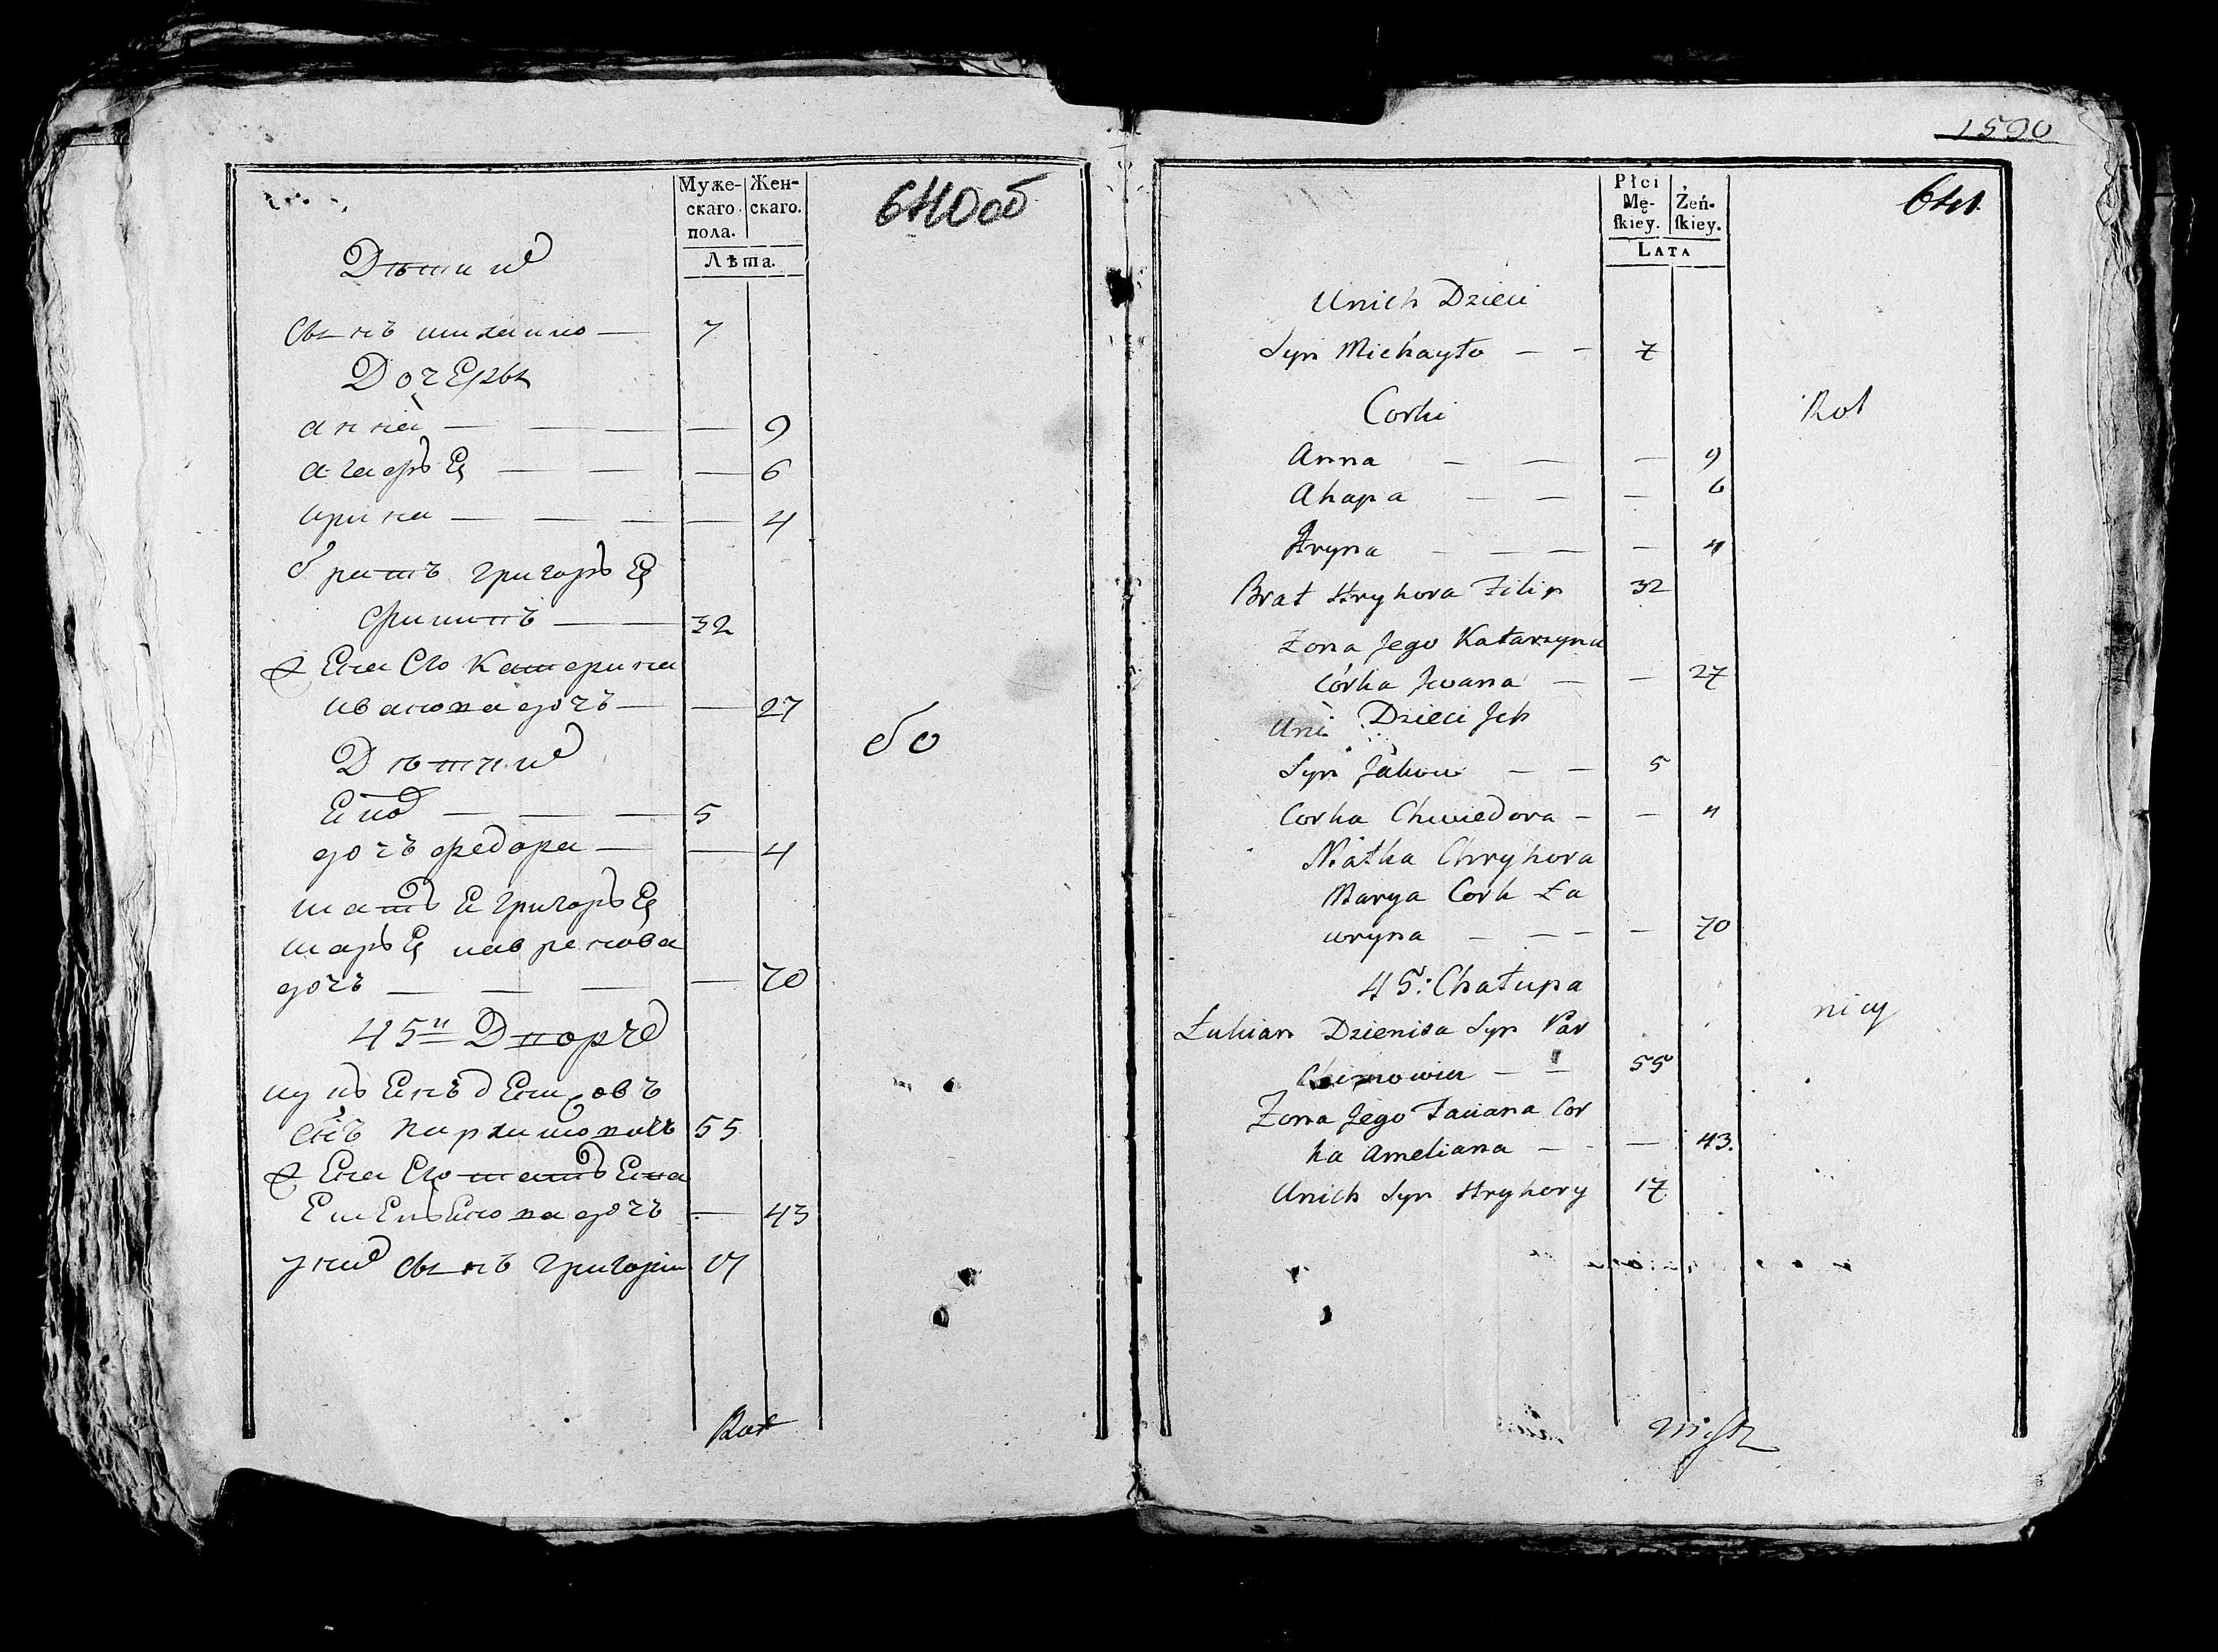 Муже-
скаго
пола.
Жен-
скаго.
Лѣта.
640об
Дѣти ихъ
Сынъ михаило — 7
Дочеры
анна — — — — 9
агафья — — — 6
ирина — — — — 4
братъ григорья
филипъ — — 32
жена его катерина
иванова дочъ — — 27
Дѣти ихъ
— — — 5
дочъ федора — — 4
мать григорья
марья лавренова
дочъ — — — — 70
бо
45й Дворъ
лукьенъ денисовъ
снъ пархимовичъ 55
жена его татьяна
емельянова дочъ — 43
у нихъ сынъ григорій 17
Rot
1590
641.
Płci
Mę-
ſkiey.
Żeń-
ſkiey.
LATA
Unich Dzieci
Syn Michayło — — 7
Corki
Rot
Anna — — — 9
Ahapa — — — 6
Hryna — — — — 4
Brat Hryhora Filip 32
Zona Jego Katarzyna
Córka Jwana — — 27
Uni Dzieci Jch
Syn Jakow — — 5
Corka Chwiedora — — 4
Matka Chryhora
Marya Cork Ła
wryna — — — — 70
45: Chałupa
nicy
Łukian Dzienisa Syn Par
chimowicz — — 55
Zona Jego Taciana Cor
ka Ameliana — — 43.
Unich Syn Hryhory 17